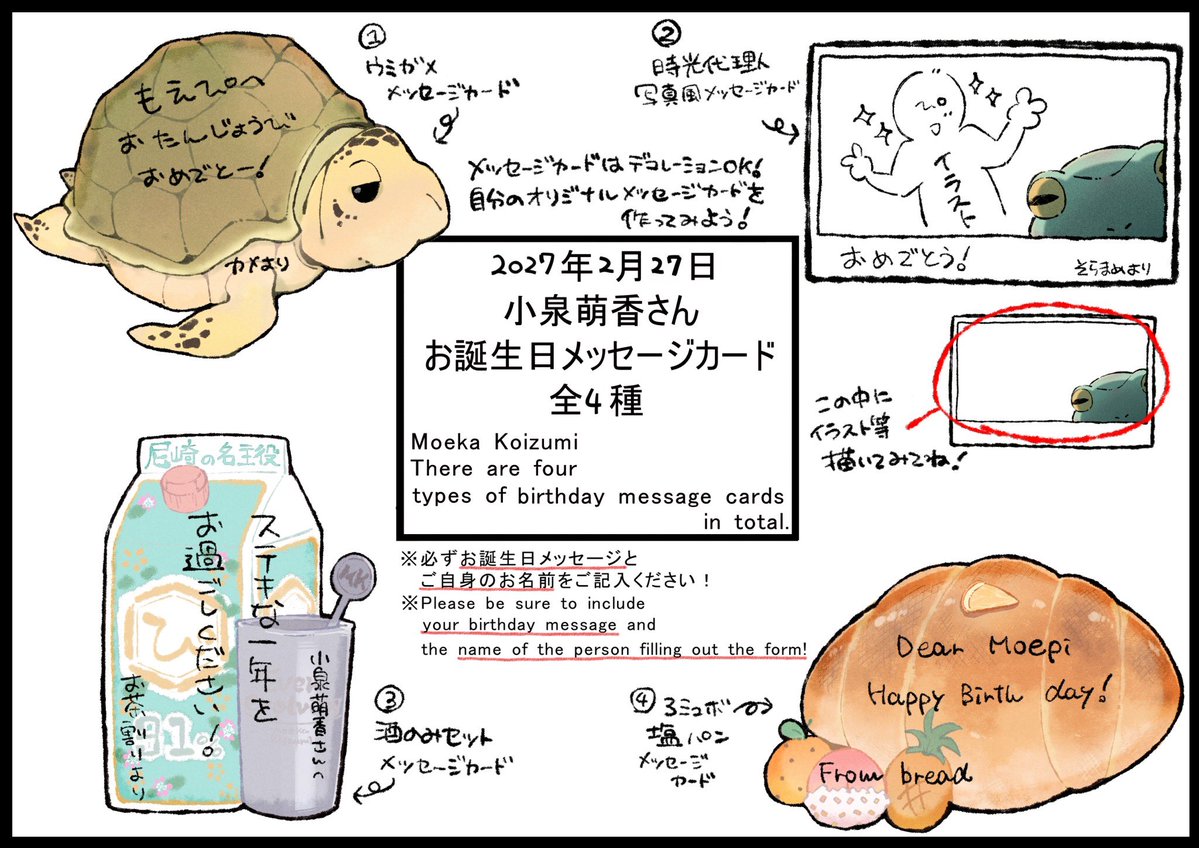 ①
ウミガメ
メッセージカード
もえぴへ
おたんじょうび
おめでとー!
カメより
②
時光代理人
写真風メッセージカード
ぴ
イラスト
おめでとう!
そらまめより
メッセージカードはデコレーションOK!
自分のオリジナルメッセージカードを
作ってみよう!
この中に
イラスト等
描いてみてね!
2027年2月27日
小泉萌香さん
お誕生日メッセージカード
全4種
Moeka Koizumi
There are four
types of birthday message cards
in total.
※必ずお誕生日メッセージと
ご自身のお名前をご記入ください!
※Please be sure to include
your birthday message and
the name of the person filling out the form!
尼崎の名主役
ステキな一年を
お過ごしください!
お茶割りより
ひ
小泉萌香さんへ
KK
③
酒のみセット
メッセージカード
④
3ミュボ
塩パン
メッセージ
カード
Dear Moepi
Happy Birth day!
From bread